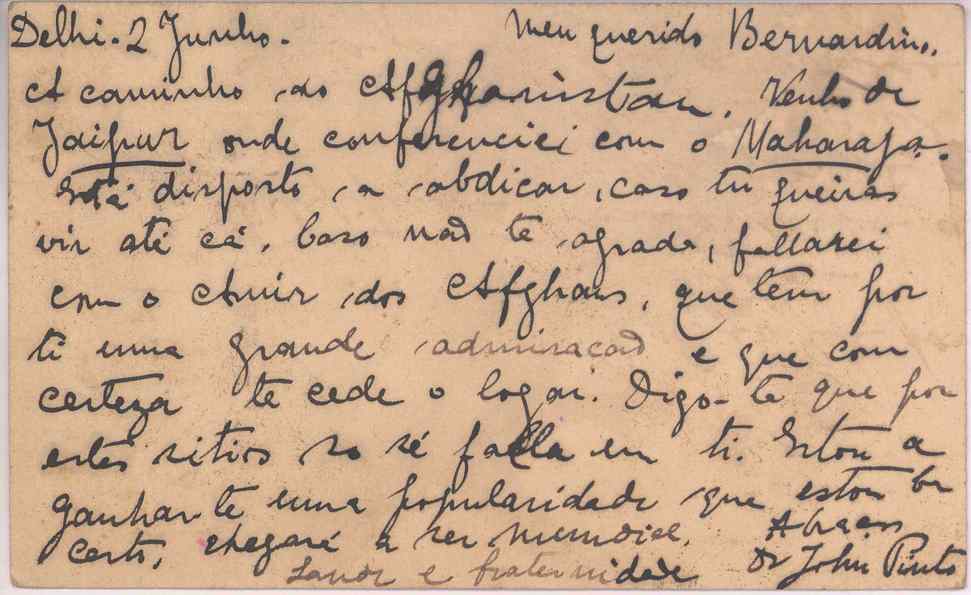 Delhi. 2 Junho. Meu querido Bernardino.
A caminho do Afghanistan. Venho de
Jaipur onde conferenciei com o Maharaja.
Está disposto a abdicar, caso tu queiras
vir até cá. Caso não te agrade, fallarei
com o Amir dos Afghans, que tem por
ti uma grande admiracão e que com
certeza te cede o logar. Digo-te que por
estes sitios so se falla em ti. Estou a
ganhar-te uma popularidade que estou be
certo, chegará a ser mundial. Abraços
Saude e fraternidade Dr John Pinto